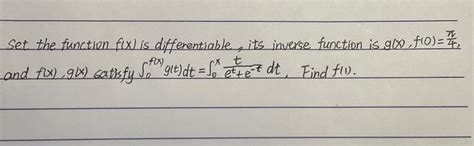 Set the function f(x) is differentiable, its inverse function is g(x), f(0)=π/4,
and f(x), g(x) satisfy ∫₀^f(x) g(t)dt = ∫₀^x t/(e^t+e^-t) dt, Find f(1).